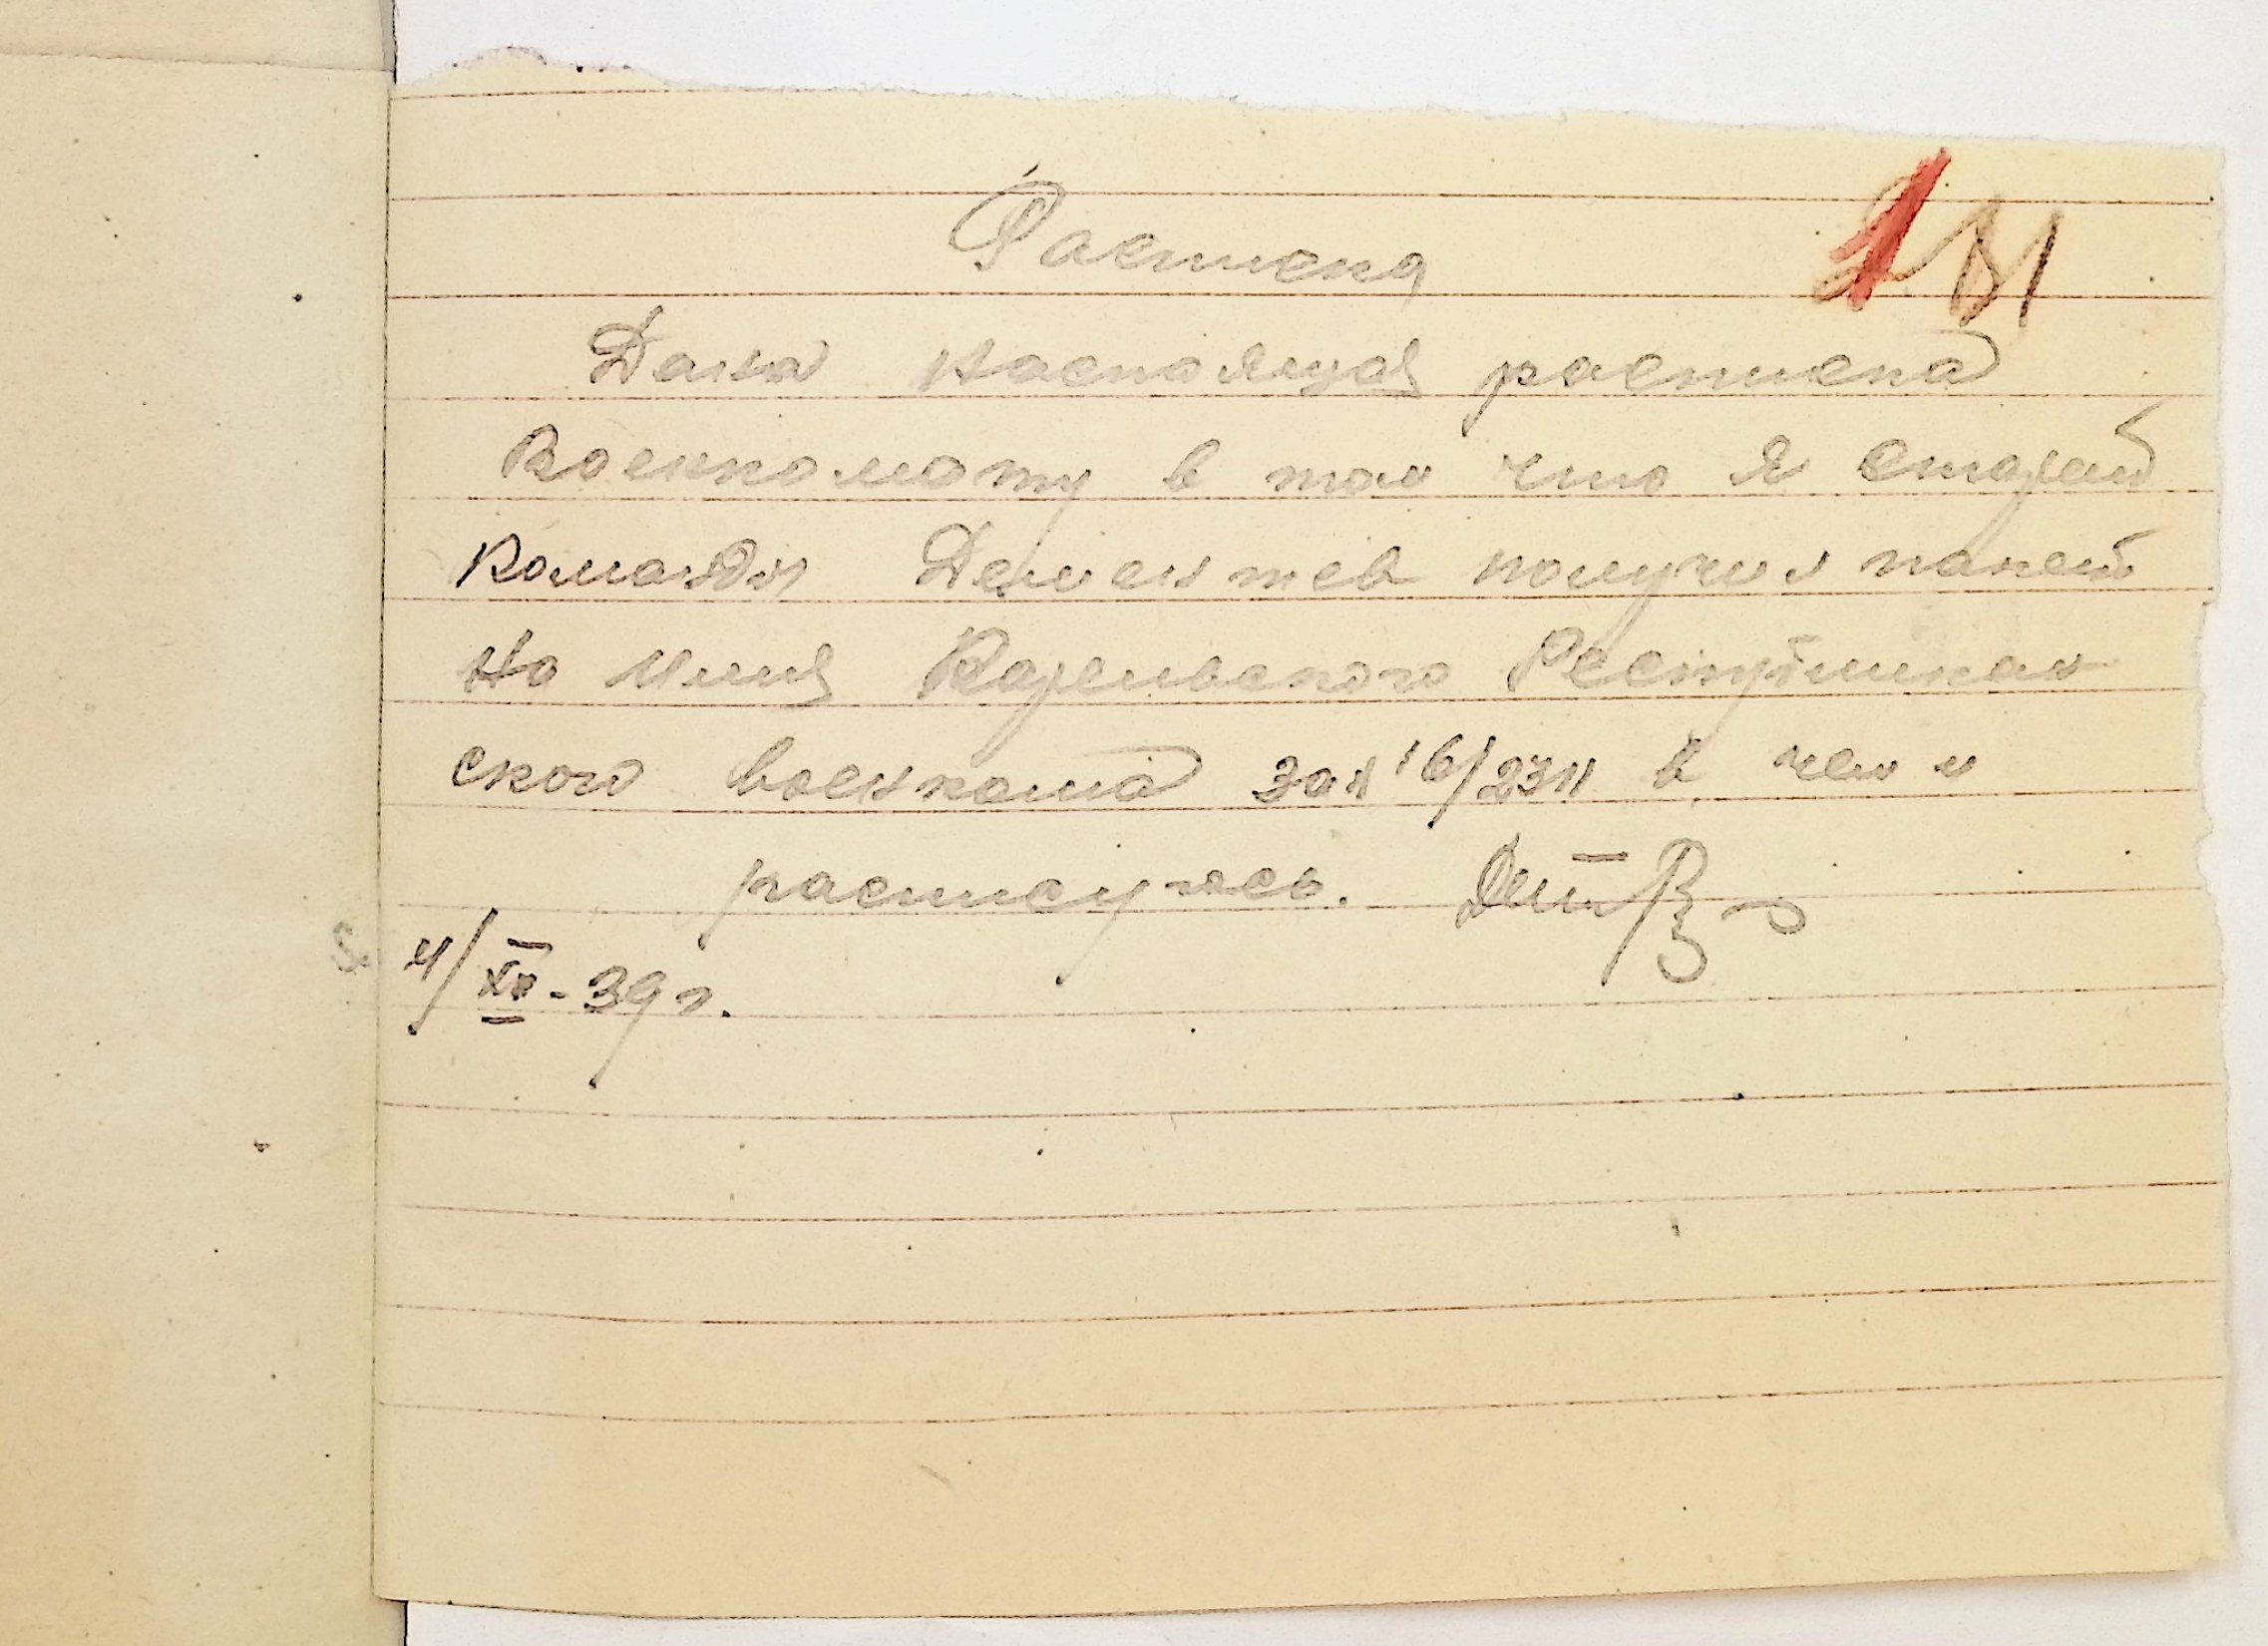 Расписка
Дана настоящая расписка
Военкомату в том что я старш
команды Дементьев получил пакет
на имя Карельского Республикан
ского военкома за № 16/2311 в чем и
расписуюсь.
4/XII-39 г.